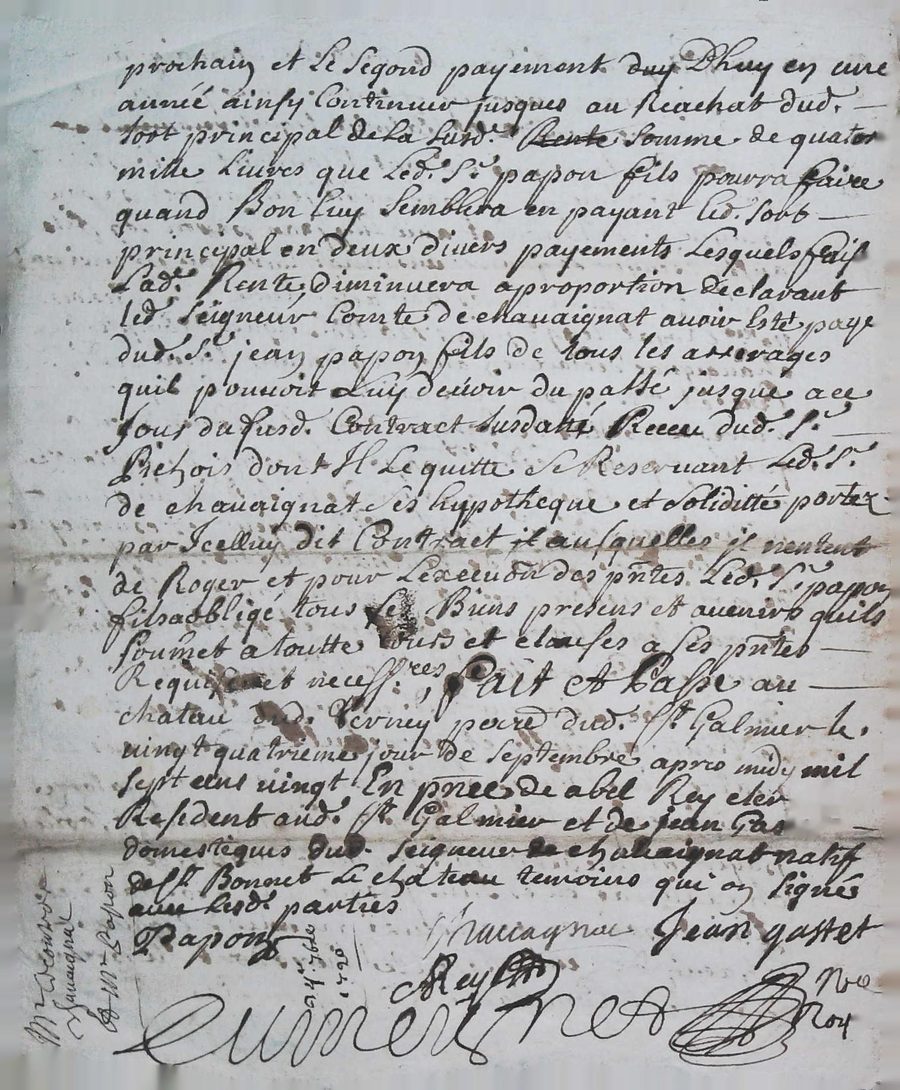 prochain et Le Segond payement duy Dhuy en une
année ainsy Continuer jusques au Reachat dud.
sort principal de la susd. Rente Somme de quatre
mille Livres que Led. Sr. papon fils pourra faire
quand Bon luy Semblera en payant led. sort
principal en deux divers payements Lesquels fait
Lade. Rente Diminuera a proportion declarant
led. Seigneur Comte de chavaignat avoir Esté paye
dud. Sr. jean papon fils de tous les arrerages
quil pouvoit Luy devoir du passé jusque a ce
Jour du susd. Contract susdatté Receu dud. Sr.
dont Il Le quitte Se Reservant Led. Sr.
de chavaignat Ses hypotheque et Soliditté portez
par Icelluy dit Contract ausquelles il nentent
de Roger et pour Lexecuon des pntes Led. Sr. papon
fils a obligé tous Ses Biens presens et avenirs quils
Soumet a toutte Cours et clauses a Ses pntes
Requise et necessres, Fait et Passé au
chatau dud. verney dud. St. Galmier le
vingt quatrieme jour de Septembre apres midy mil
sept cens vingt En pnce de abel Rey clerc
Resident aud. St. Galmier et de jean Gas
domestiques dud. Seigneur de chavaignat natif
de St. Bonnet Le chateau temoins qui on Signé
avec Lesd. parties
Papon Chavagnac Jean gastet
ARey
No
Roy
24e. 7bre
1720
Mr Le Comte de
Chavaignac
Et Mr. Papon